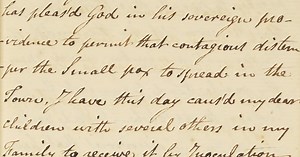 has pleas'd God in his sovereign pro-
vidence to permit that contagious distem-
per the Small pox to spread in the
Town. I have this day caus'd my dear
children with several others in my
Family to receive it by Inoculation